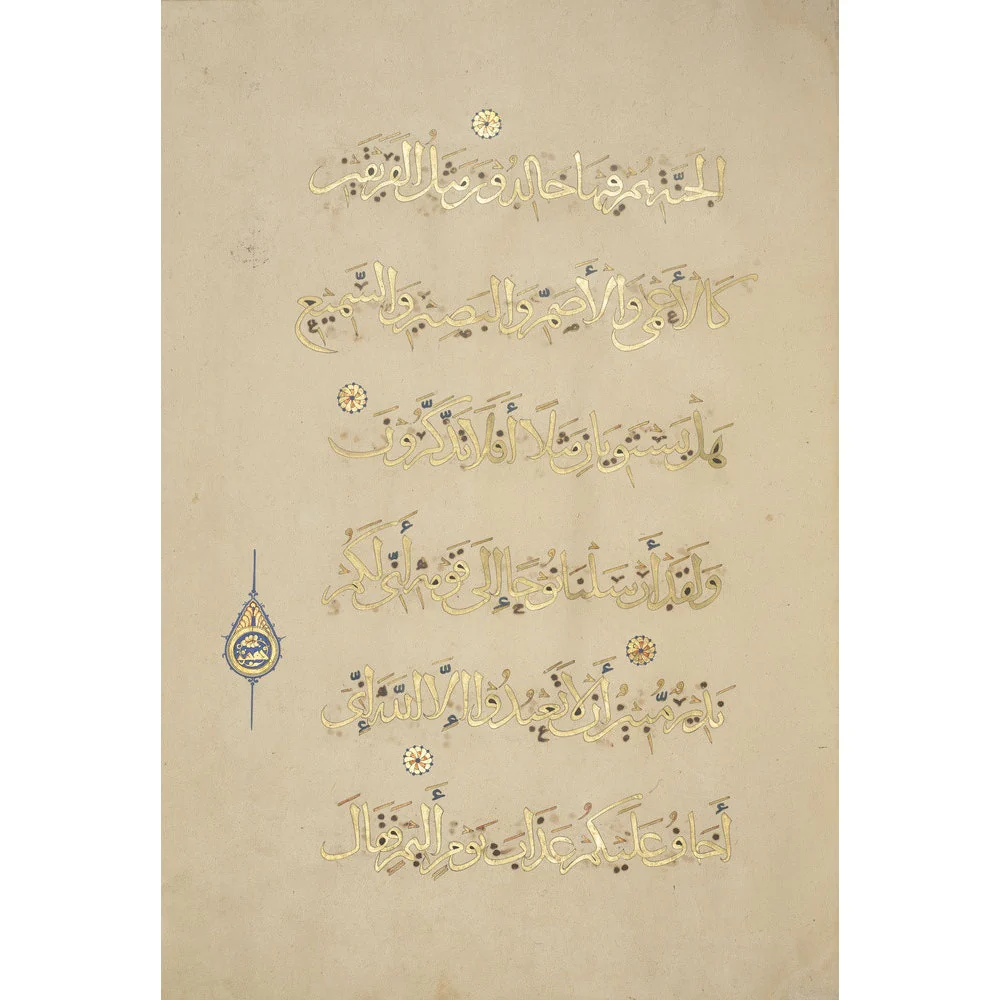 الجَنَّةِ هُمْ فِيهَا خَالِدُونَ مَثَلُ الفَرِيقَيْنِ
كَالأَعْمَى وَالأَصَمِّ وَالبَصِيرِ وَالسَّمِيعِ
هَلْ يَسْتَوِيَانِ مَثَلًا أَفَلَا تَذَكَّرُونَ
وَلَقَدْ أَرْسَلْنَا نُوحًا إِلَى قَوْمِهِ أَنِّى لَكُمْ
نَذِيرٌ مُّبِينٌ أَن لَا تَعْبُدُوا إِلَّا اللَّهَ إِنِّى
أَخَافُ عَلَيْكُمْ عَذَابَ يَوْمٍ أَلِيمٍ فَقَالَ